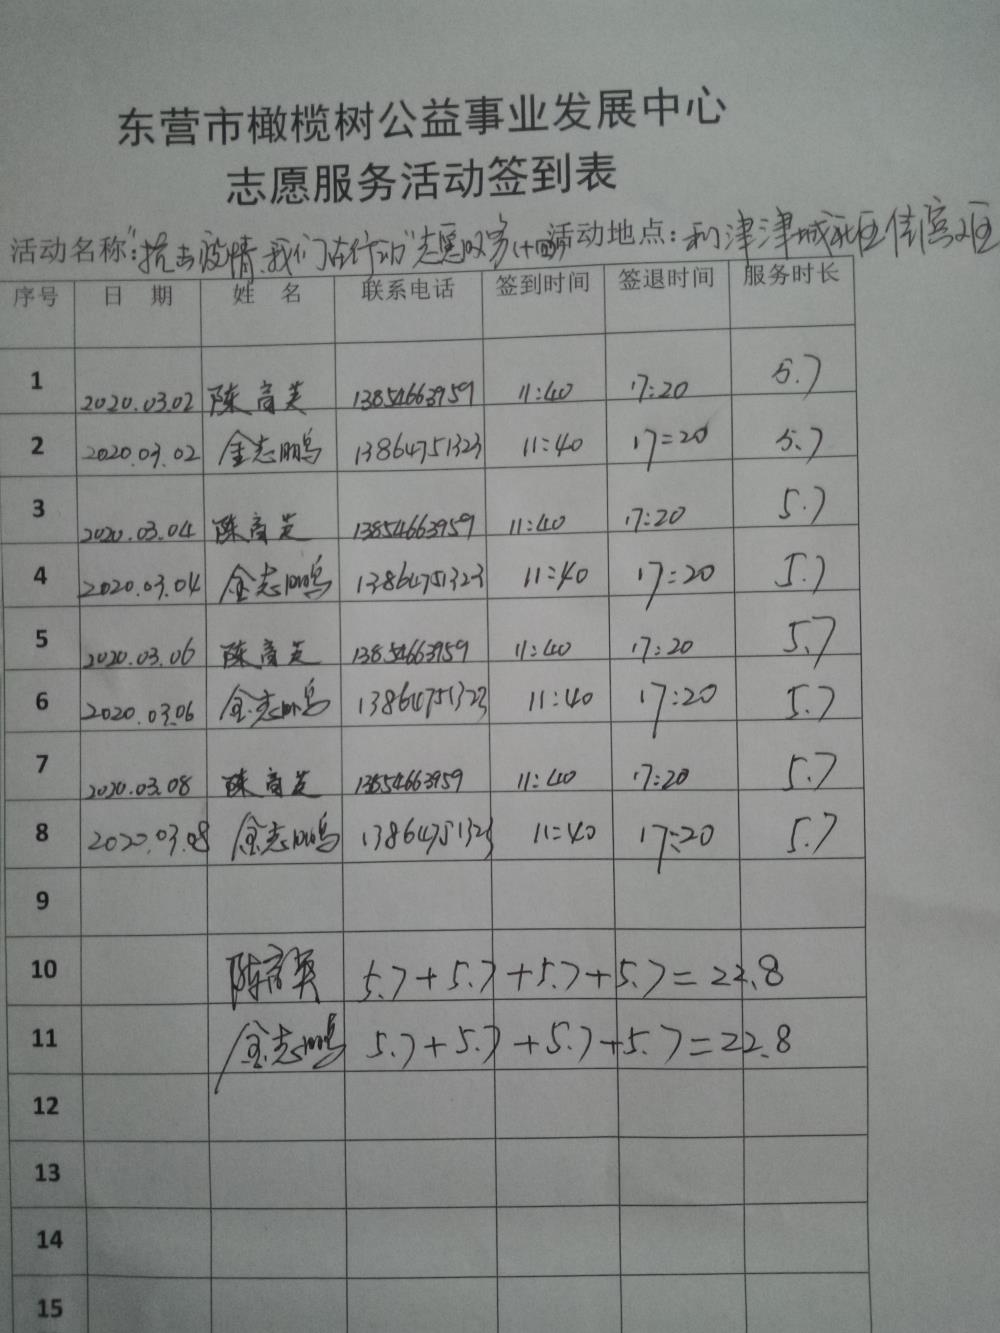 东营市橄榄树公益事业发展中心
志愿服务活动签到表
活动名称:"抗击疫情、我们在行动"志愿服务(十四) 活动地点:利津津城社区
序号 日 期 姓 名 联系电话 签到时间 签退时间 服务时长
1 2020.03.02 陈高英 13854663959 11:40 17:20 5.7
2 2020.03.02 金志鹏 13864751323 11:40 17:20 5.7
3 2020.03.04 陈高英 13854663959 11:40 17:20 5.7
4 2020.03.04 金志鹏 13864751323 11:40 17:20 5.7
5 2020.03.06 陈高英 13854663959 11:40 17:20 5.7
6 2020.03.06 金志鹏 13864751323 11:40 17:20 5.7
7 2020.03.08 陈高英 13854663959 11:40 17:20 5.7
8 2020.03.08 金志鹏 13864751323 11:40 17:20 5.7
9
10 陈高英 5.7+5.7+5.7+5.7=22.8
11 金志鹏 5.7+5.7+5.7+5.7=22.8
12
13
14
15